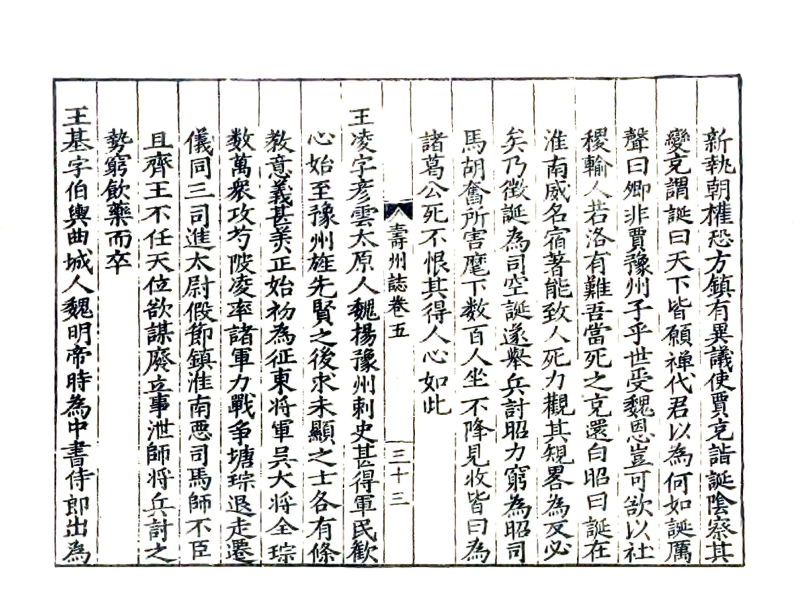 新執朝權恐方鎮有異議使賈充詣誕陰察其
變充謂誕曰天下皆願禪代君以為何如誕厲
聲曰卿非賈豫州子乎世受魏恩豈可欲以社
稷輸人若洛有難吾當死之充還白昭曰誕在
淮南威名宿著能致人死力觀其規畧為反必
矣乃徵誕為司空誕遂舉兵討昭力窮為昭司
馬胡奮所害麾下数百人坐不降見收皆曰為
諸葛公死不恨其得人心如此
壽州誌卷五
三十三
王凌字彥雲太原人魏揚豫州刺史甚得軍民歡
心始至豫州旌先賢之後求未顯之士各有條
教意義甚美正始初為征東将軍吳大将全琮
数萬衆攻芍陂凌率諸軍力戰争塘琮退走遷
儀同三司進太尉假節鎮淮南惡司馬師不臣
且齊王不任天位欲謀廢立事泄師将兵討之
勢窮飲藥而卒
王基字伯輿曲城人魏明帝時為中書侍郎出為